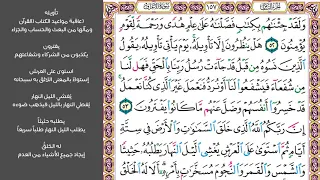 ١٥٧
وَلَقَدْ جِئْنَٰهُم بِكِتَٰبٍ فَصَّلْنَٰهُ عَلَىٰ عِلْمٍ هُدًى وَرَحْمَةً لِّقَوْمٍ
يُؤْمِنُونَ ٥٢ هَلْ يَنظُرُونَ إِلَّا تَأْوِيلَهُۥ يَوْمَ يَأْتِى تَأْوِيلُهُۥ يَقُولُ
ٱلَّذِينَ نَسُوهُ مِن قَبْلُ قَدْ جَآءَتْ رُسُلُ رَبِّنَا بِٱلْحَقِّ فَهَل لَّنَا
مِن شُفَعَآءَ فَيَشْفَعُوا۟ لَنَآ أَوْ نُرَدُّ فَنَعْمَلَ غَيْرَ ٱلَّذِى كُنَّا نَعْمَلُ
قَدْ خَسِرُوٓا۟ أَنفُسَهُمْ وَضَلَّ عَنْهُم مَّا كَانُوا۟ يَفْتَرُونَ ٥٣
إِنَّ رَبَّكُمُ ٱللَّهُ ٱلَّذِى خَلَقَ ٱلسَّمَٰوَٰتِ وَٱلْأَرْضَ فِى سِتَّةِ
أَيَّامٍ ثُمَّ ٱسْتَوَىٰ عَلَى ٱلْعَرْشِ يُغْشِى ٱلَّيْلَ ٱلنَّهَارَ يَطْلُبُهُۥ حَثِيثًا
وَٱلشَّمْسَ وَٱلْقَمَرَ وَٱلنُّجُومَ مُسَخَّرَٰتٍۭ بِأَمْرِهِۦٓ أَلَا لَهُ ٱلْخَلْقُ
تأويله
عاقبة مواعيد الكتاب القرآن
ومآلها من البعث والحساب والجزاء
يفترون
يكذبون من الشركاء وشفاعتهم
استوى على العرش
إستواءً بالمعنى اللائق به سبحانه
يغشي الليل النهار
يغطي النهار بالليل فيذهب ضوءه
يطلبه حثيثاً
يطلب الليل النهار طلباً سريعاً
له الخلق
إيجاد جميع الأشياء من العدم